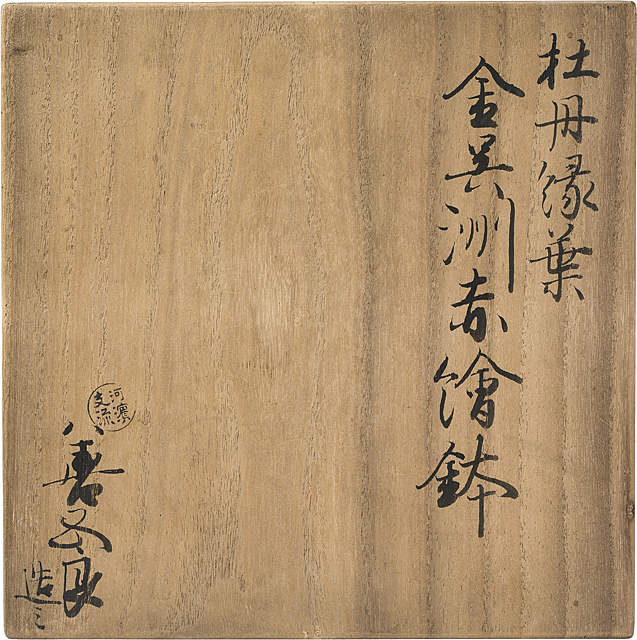 杜丹縁葉
金呉洲赤繪鉢
河濱支流
善五郎
造之